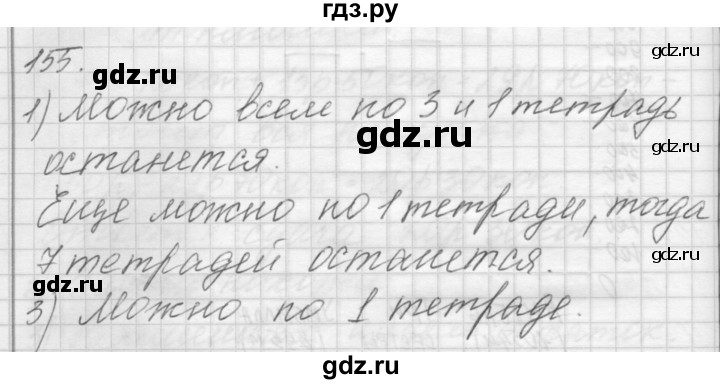 гдз.ру
155.
gdz.ru
gdz.ru
1) Можно всем по 3 и 1 тетрадь
gdz.ru
gdz.ru
останется.
gdz.ru
Еще можно по 1 тетради, тогда
gdz.ru
7 тетрадей останется.
gdz.ru
gdz.ru
3) Можно по 1 тетраде.
gdz.ru
gdz.ru